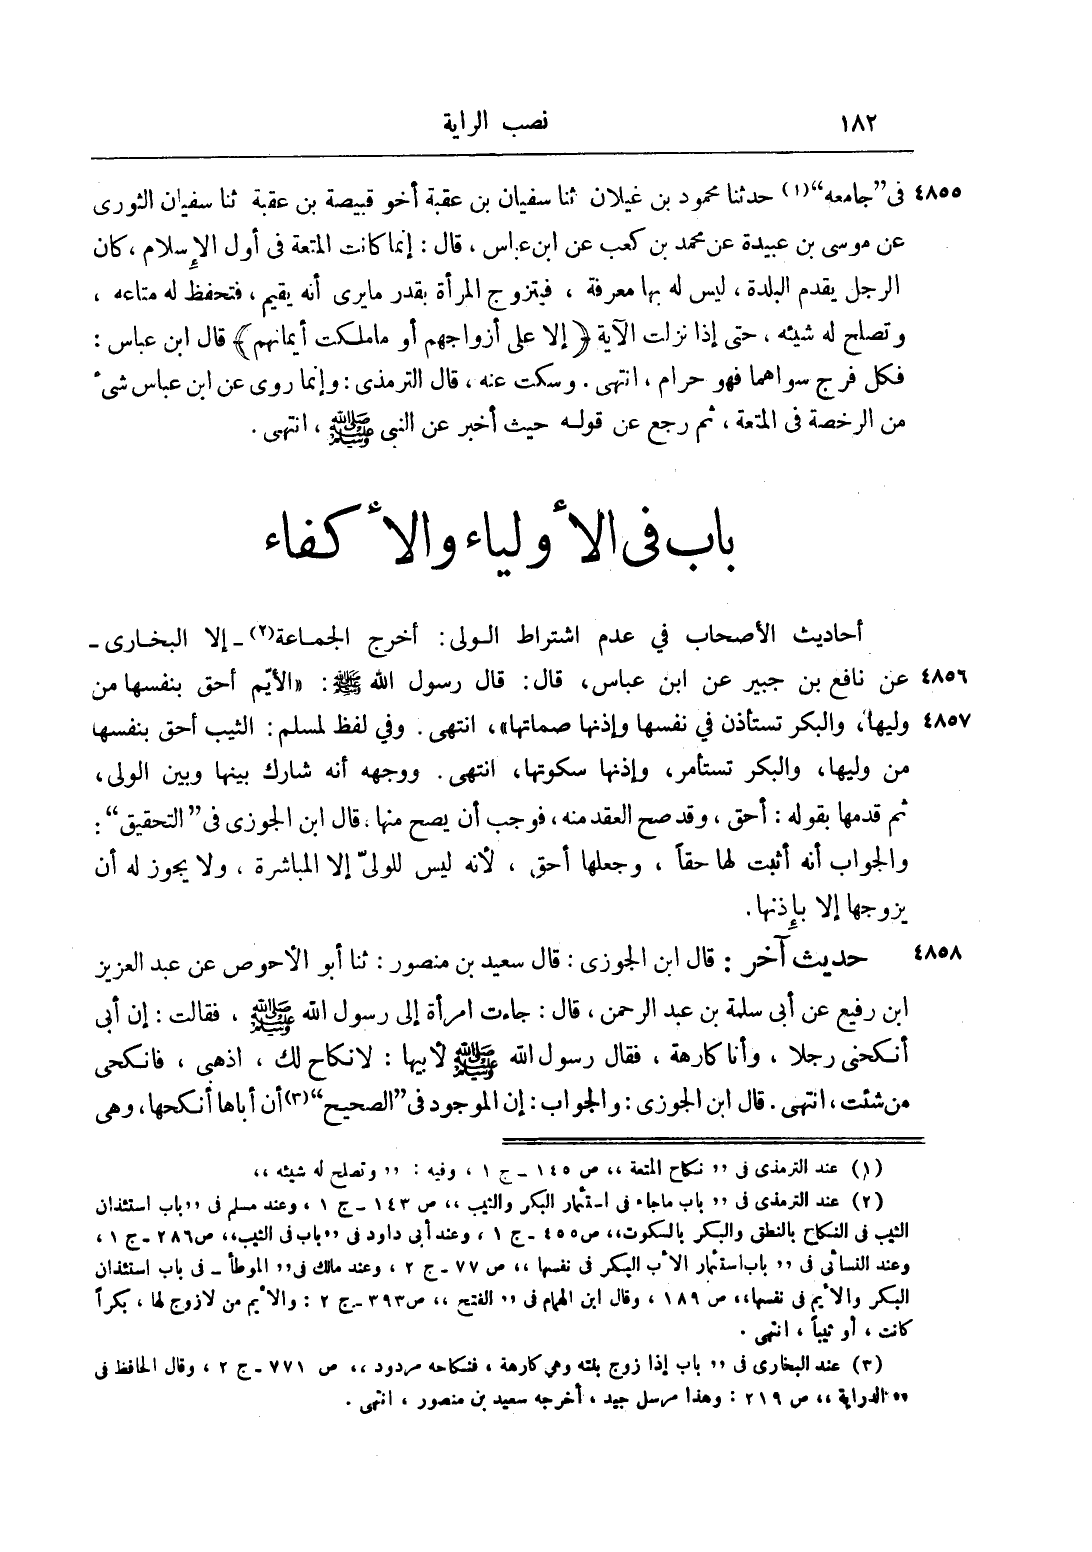 ١٨٢ نصب الراية
٤٨٥٥ فى”جامعه“(١) حدثنا محمود بن غيلان ثنا سفيان بن عقبة أخو قبيصة بن عقبة ثنا سفيان الثورى
عن موسى بن عبيدة عن محمد بن كعب عن ابن عباس ، قال : إنما كانت المتعة فى أول الإسلام ، كان
الرجل يقدم البلدة ، ليس له بها معرفة ، فيتزوج المرأة بقدر مايرى أنه يقيم ، فتحفظ له متاعه ،
وتصلح له شيئه ، حتى إذا نزلت الآية ﴿ إلا على أزواجهم أو ماملكت أيمانهم ﴾ قال ابن عباس :
فكل فرج سواهما فهو حرام ، انتهى . وسكت عنه ، قال الترمذى : وإنما روى عن ابن عباس شىء
من الرخصة فى المتعة ، ثم رجع عن قوله حيث أخبر عن النبى ﷺ ، انتهى .
باب فى الأولياء والأكفاء
أحاديث الأصحاب في عدم اشتراط الولى: أخرج الجماعة(٢) ـ إلا البخارى ـ
٤٨٥٦ عن نافع بن جبير عن ابن عباس، قال: قال رسول الله ﷺ: «الأيّم أحق بنفسها من
٤٨٥٧ وليها، والبكر تستأذن في نفسها وإذنها صماتها»، انتهى. وفي لفظ لمسلم: الثيب أحق بنفسها
من وليها، والبكر تستأمر، وإذنها سكوتها، انتهى. ووجهه أنه شارك بينها وبين الولى،
ثم قدمها بقوله : أحق ، وقد صح العقد منه ، فوجب أن يصح منها . قال ابن الجوزى فى”التحقيق“ :
والجواب أنه أثبت لها حقاً ، وجعلها أحق ، لأنه ليس للولىّ إلا المباشرة ، ولا يجوز له أن
يزوجها إلا بإذنها .
٤٨٥٨ حديث آخر : قال ابن الجوزى : قال سعيد بن منصور : ثنا أبو الأحوص عن عبد العزيز
ابن رفيع عن أبى سلمة بن عبد الرحمن ، قال : جاءت امرأة إلى رسول الله ﷺ ، فقالت : إن أبى
أنكحنى رجلا ، وأنا كارهة ، فقال رسول الله ﷺ لأبيها : لانكاح لك ، اذهبى ، فانكحى
من شئت ، انتهى . قال ابن الجوزى : والجواب : إن الموجود فى”الصحيح“(٣) أن أباها أنكحها ، وهى
(١) عند الترمذى فى ”نكاح المتعة“ ص ١٤٥ ـ ج ١ ، وفيه : ”وتصلح له شيئه“
(٢) عند الترمذى فى ”باب ماجاء فى استئمار البكر والثيب“ ص ١٤٣ ـ ج ١ ، وعند مسلم فى ”باب استئذان
الثيب فى النكاح بالنطق والبكر بالسكوت“ ص ٤٥٥ ـ ج ١ ، وعند أبى داود فى ”باب فى الثيب“ ص ٢٨٦ ـ ج ١ ،
وعند النسائى فى ”باب استئمار الأب البكر فى نفسها“ ص ٧٧ ـ ج ٢ ، وعند مالك فى” الموطأ ـ فى باب استئذان
البكر والأيم فى نفسها“ ص ١٨٩ ، وقال ابن الهمام فى ”الفتح“ ص ٣٩٣ ـ ج ٢ : والأيم من لازوج لها ، بكراً
كانت ، أو ثيباً ، انتهى .
(٣) عند البخارى فى ”باب إذا زوج بنته وهى كارهة ، فنكاحه مردود“ ص ٧٧١ ـ ج ٢ ، وقال الحافظ فى
”الدراية“ ص ٢١٩ : وهذا مرسل جيد ، أخرجه سعيد بن منصور ، انتهى .